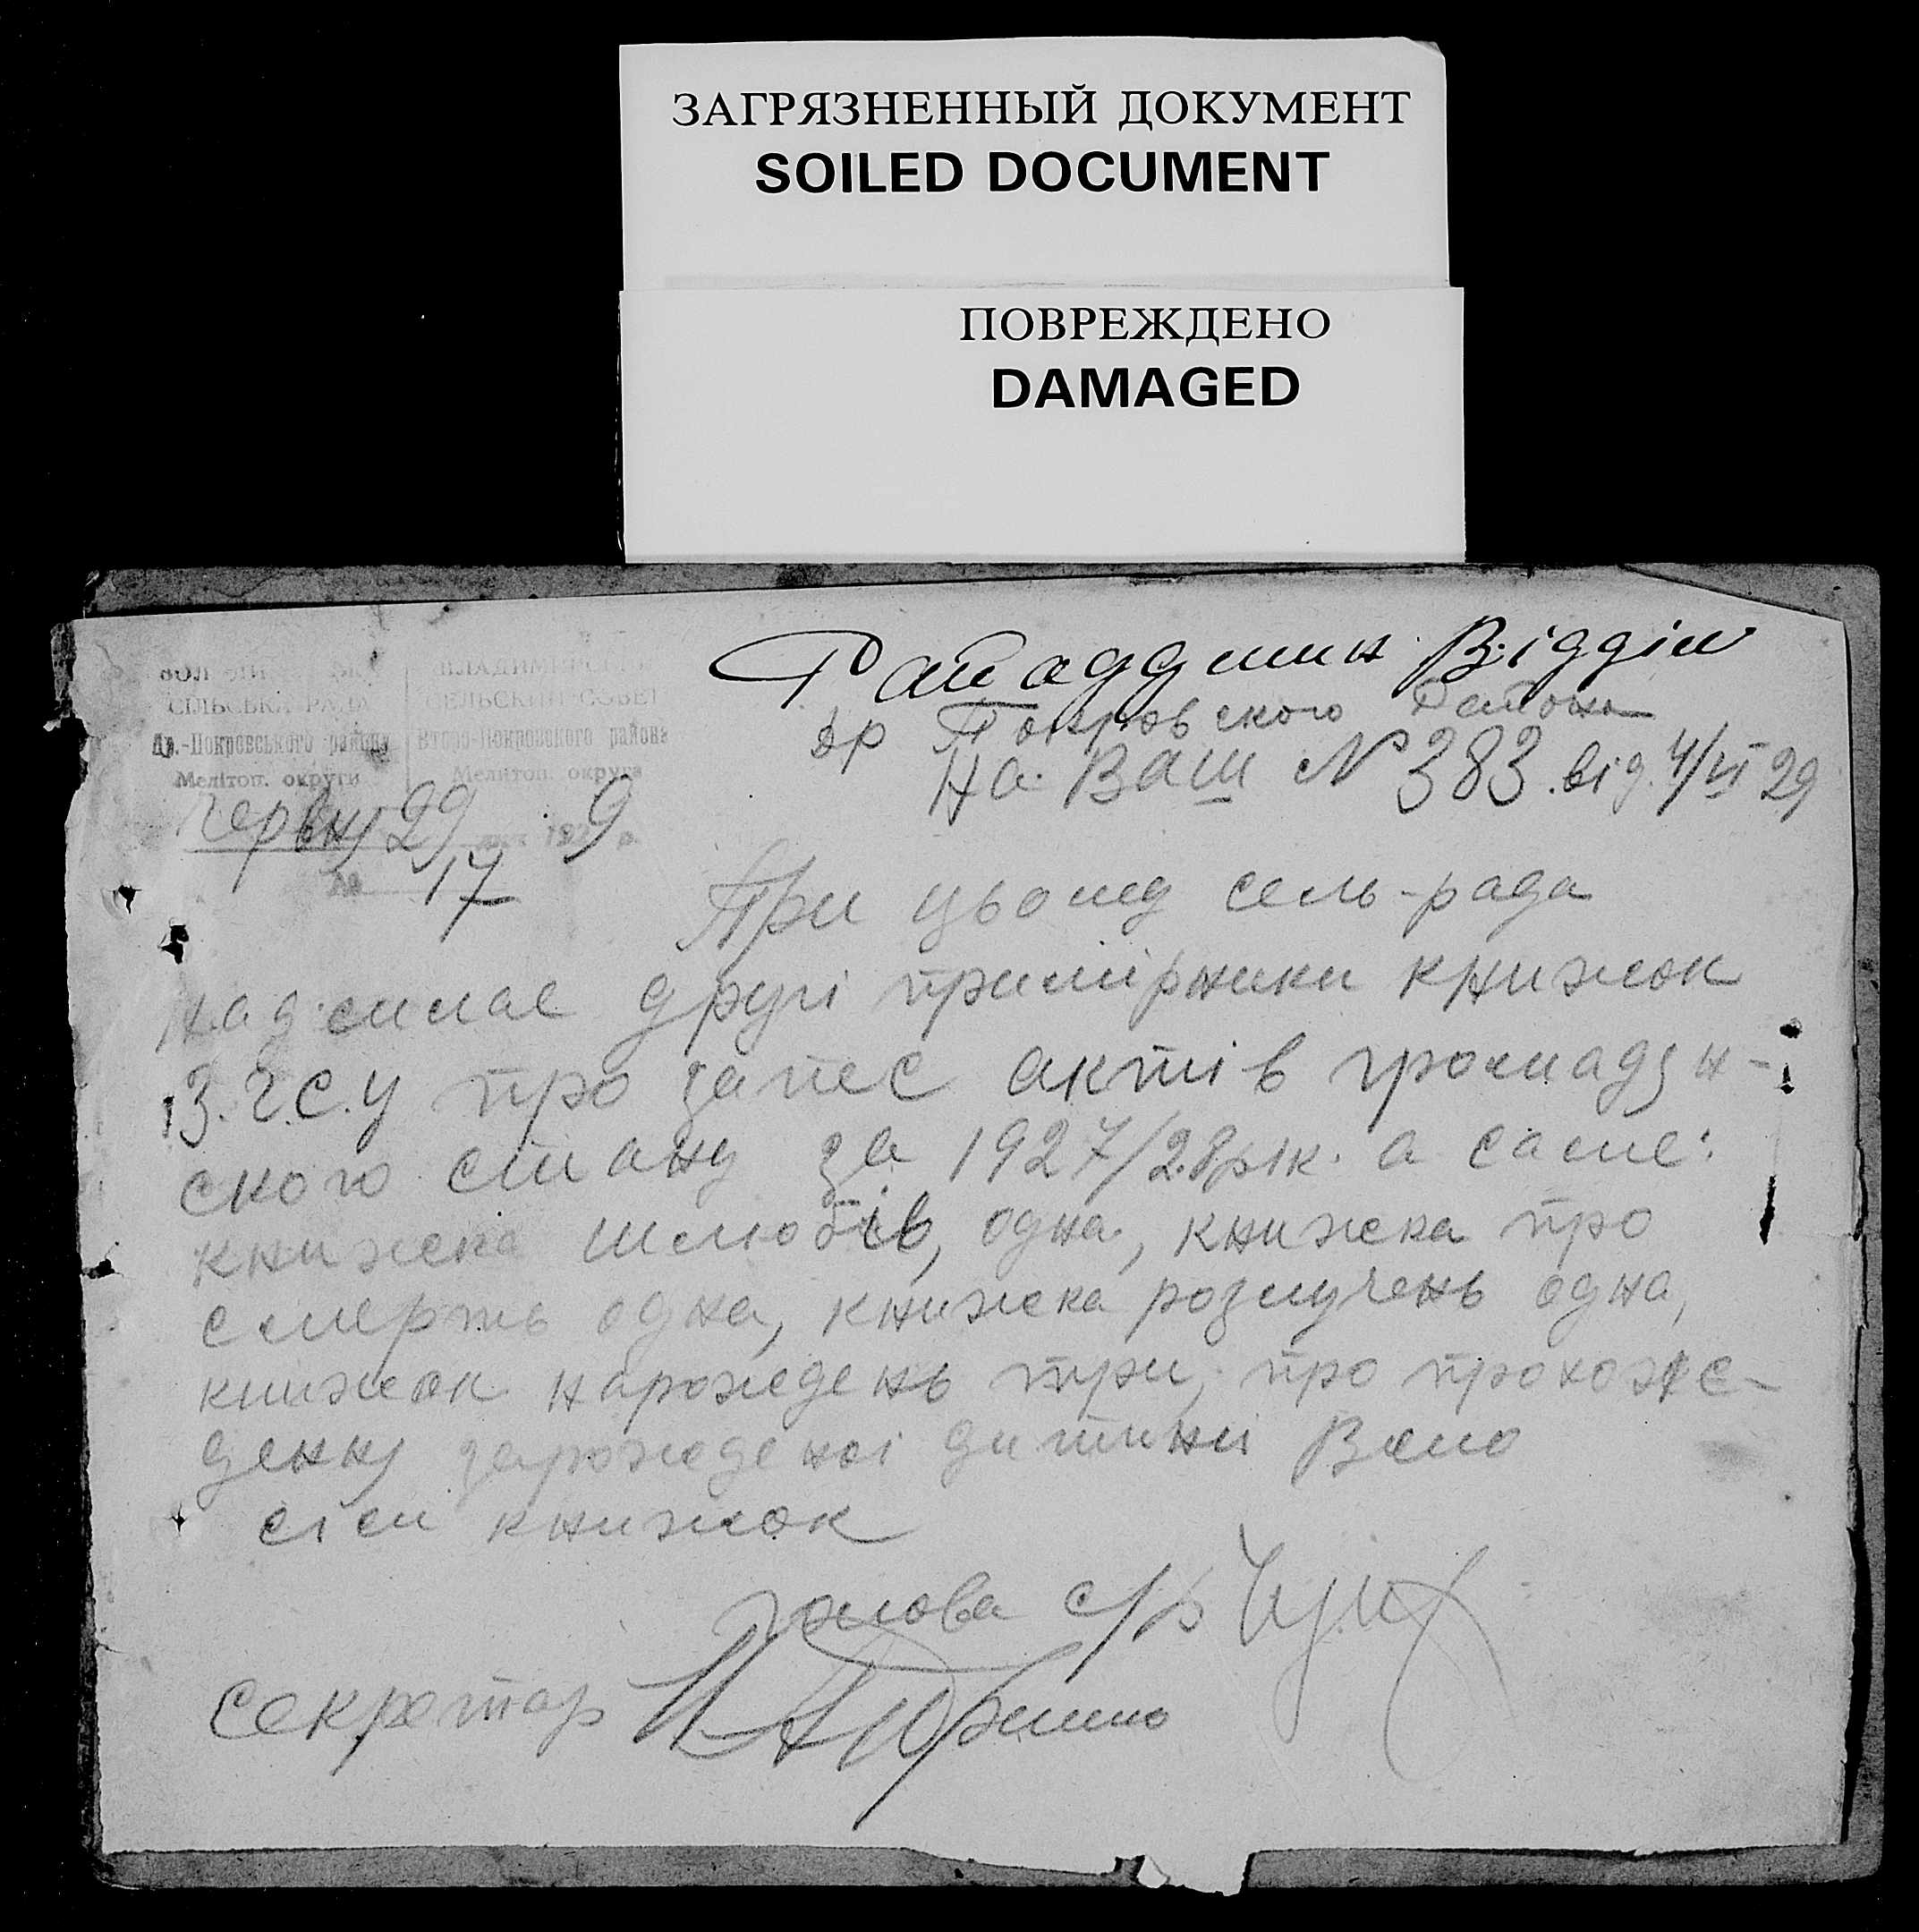 ЗАГРЯЗНЕННЫЙ ДОКУМЕНТ
SOILED DOCUMENT
ПОВРЕЖДЕНО
DAMAGED
СІЛЬСЬКА РАДА
Др.-Покровського району
Мелітоп. округи
СЕЛЬСКИЙ СОВЕТ
Второ-Покровского района
Мелитоп. округа
29 192 9 р.
№ 17
Відділ
др Покровського Району
На Ваш № 383 від 4/VI 29
При цьому сель-рада
надсилае другі примірники книжок
З.г.С.у про запес актів громадян-
ского стану за 1927/28 рік. а саме:
книжека шлюбів, одна, книжека про
смерть одна, книжека розлучень одна,
книжок нарождень три, про
дитині Всего
сім книжок
голова с/р
секретар